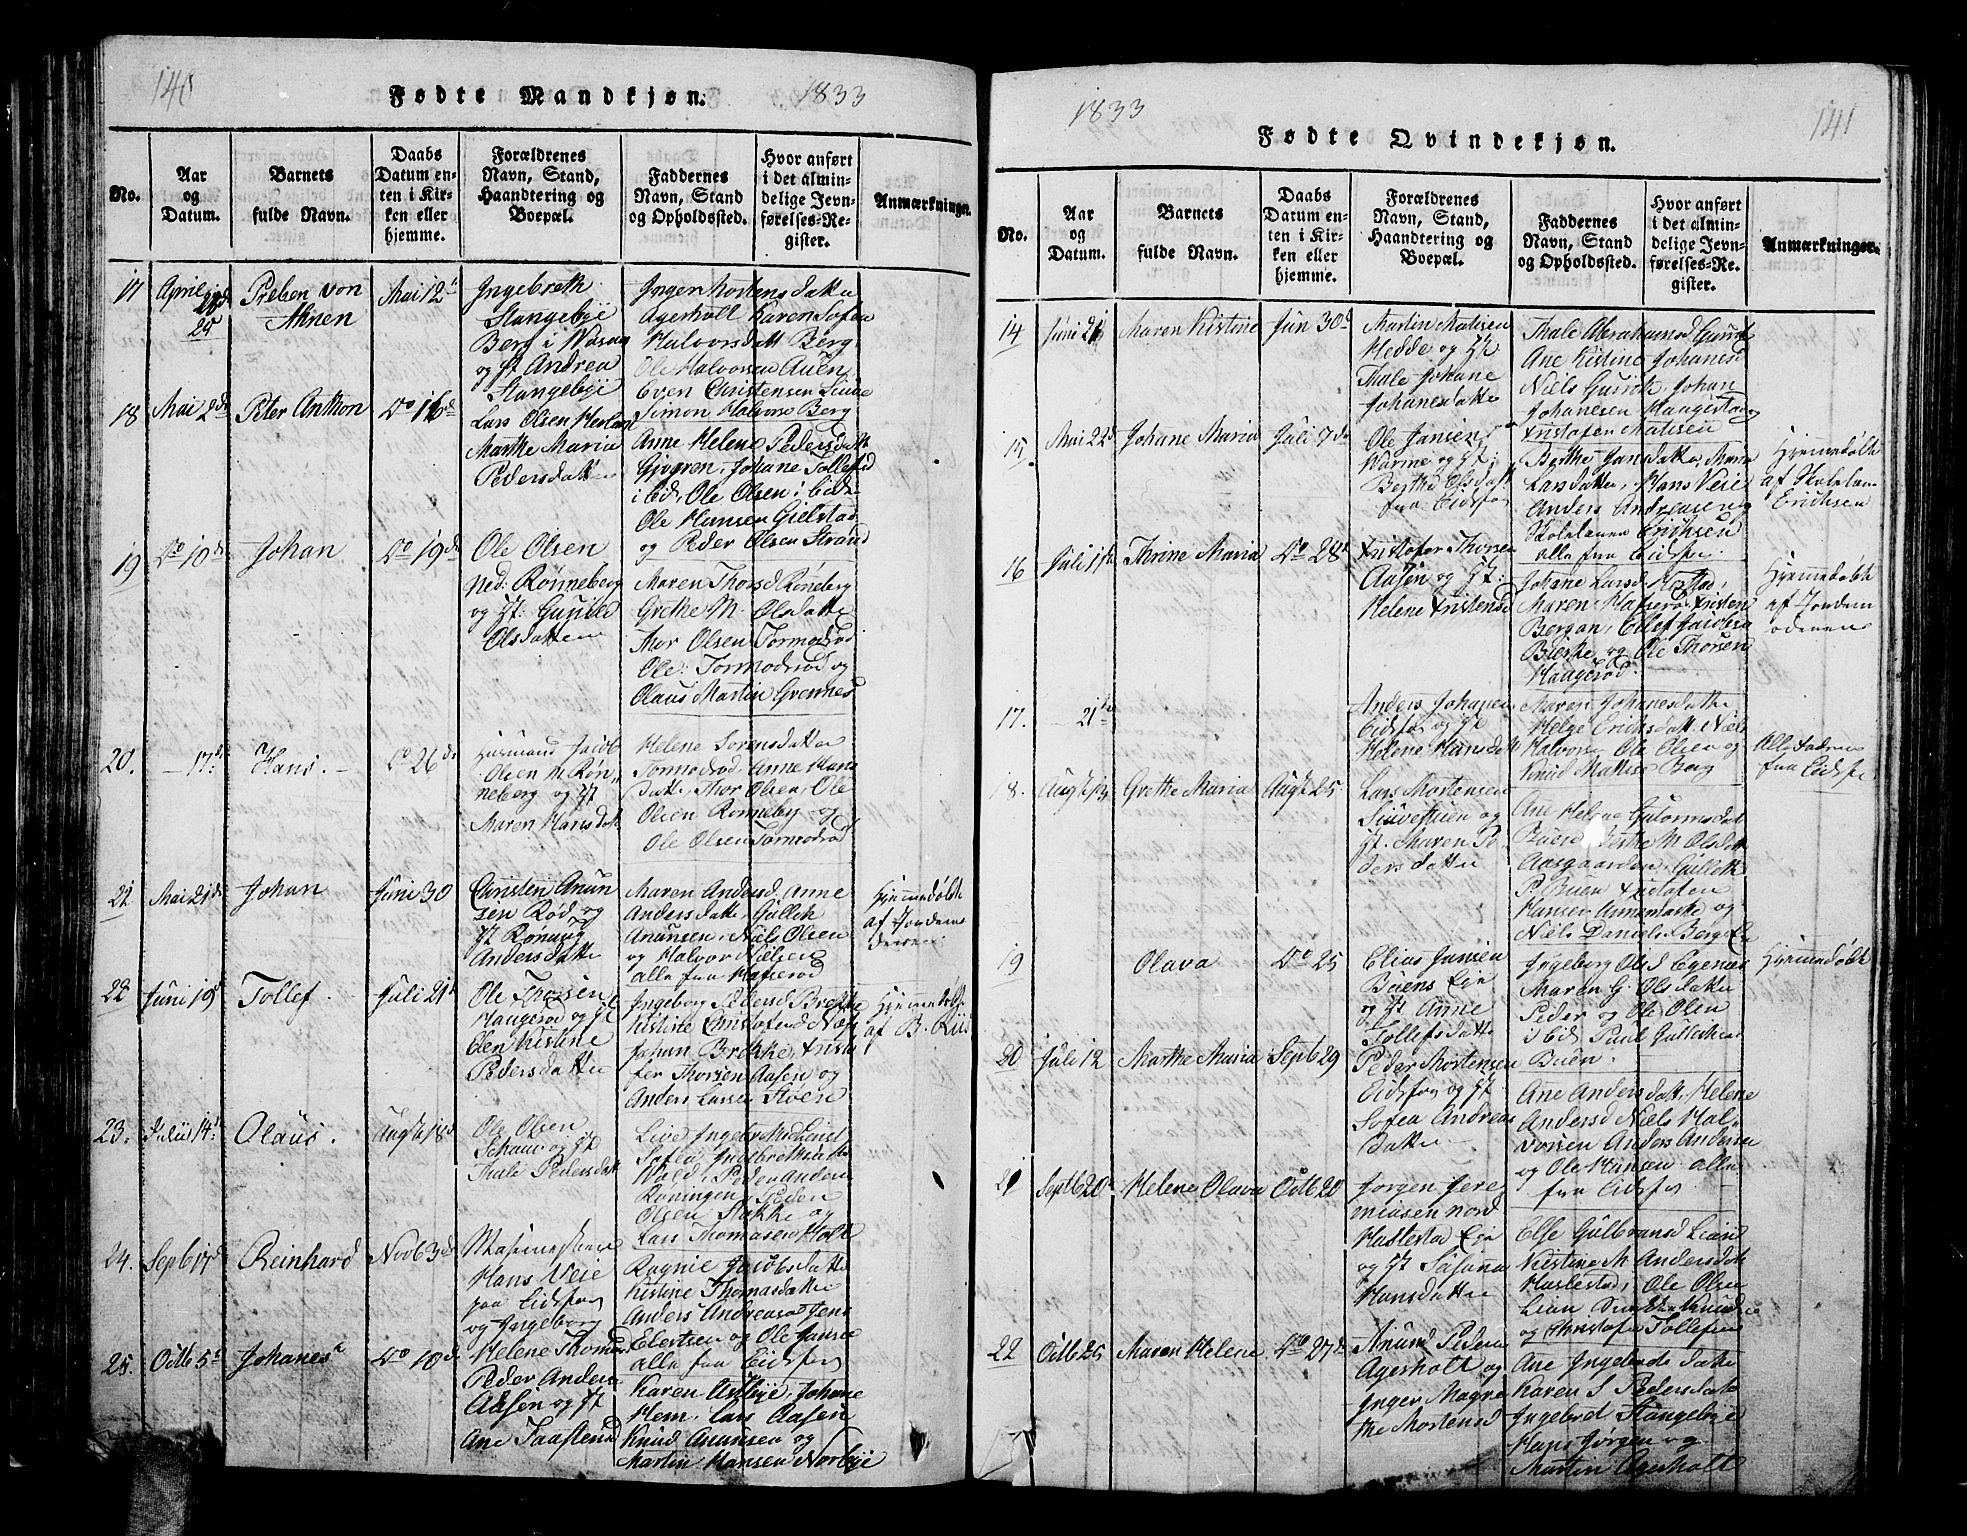 140
Fødte Mandkjøn.
1833
No.
Aar
og
Datum.
Barnets
fulde Navn.
Daabs
Datum en-
ten i Kir-
ken eller
hjemme.
Forældrenes
Navn, Stand,
Haandtering og
Boepæl.
Faddernes
Navn, Stand
og Opholdssted.
Hvor anført
i det almin-
delige Jevn-
førelses-Re-
gister.
Anmærkninger.
17
April
25
Preben von
Ahnen
Mai 12
Ingebreth
Stangebye
Berg i
og Andrea
Stangebye
Inger Mortensdatter
Agerholt Karen Sofea
Halvorsdatt Berg
Ole Halvorsen Auen
Even Christensen
Simon Halvors Berg
18
Mai 2d
Peter Anthon
Do 16d
Lars Olsen
Marthe Maria
Pedersdatter
Anne Helene Pedersdatter
Johane
ibid, Ole Olsen ibid
Ole Hansen Gielstad
og Peder Olsen Strand
19
Do 10d
Johan
Do 19d
Ole Olsen
ned: Rønneberg
og Gunild
Olsdatter
Maren Thorsd Røneberg
Grethe M. Olsdatter
Thor Olsen Tormodsrød
Ole Tormodsrød og
Olaus Martin Grennes
20.
17d
Hans.
Do 26d
Huusmand Jacob
Olsen M Røn-
neberg og
Maren Hansdatt
Helene Sorensdatter
Tormodsrød, Anne Hans
datter, Thor Olsen, Ole
Olsen Rønneby og
Ole Olsen Tormodsrød
21
Mai 21d
Johan
Juni 30
Christen Anun
sen Rød og
Rønaug
Andersdatter
Maren Andersd, Anne
Andersdatter, Gulleik
Anunsen, Niels Olsen
og Halvor Nielsen
alle fra Hafsrød
Hjemmedøbt
af Jordem
22
Juni 19d
Tollef.
Juli 21
Ole Thorsen
Haugerød og
Elen Kistine
Pedersdatter
Ingeborg Pedersd Brekke
Kistine Christofersd Næs
Johan Brekke, Kristo
fer Thorsen Aasen og
Anders Larsen
Hjemmedøbt
af B.
23.
Julii 14
Olaus.
Augt 18d
Ole Olsen
og
Thale Pedersdatt
Live Ingebr
Sofea Ingebrethsdatter
Wold, Peder Anders
Roningen, Peder
Olsen Stokke og
Lars Thomasen Holt
24.
Sepb 17d
Reinhard
Novb 3d
Hans Veie
paa Eidsfos
og Ingeborg
Helene Thomas
Ragnie Jacobsdatter
Kistine Thomasdatter
Anders Andreasen Jens
Eilertsen og Ole Jansen
alle fra Eidsfos
25.
Octb 5
Johanes
Do 10d
Peder Anders
Aasen og
Ane Taastend
Karen Astbye, Johane
Hem, Lars Aasen
Knud Anunsen og
Martin Hansen Norbye
1833
Fødte Qvindekjøn.
141
No.
Aar
og
Datum.
Barnets
fulde Navn.
Daabs
Datum en-
ten i Kir-
ken eller
hjemme.
Forældrenes
Navn, Stand,
Haandtering og
Boepæl.
Faddernes
Navn, Stand
og Opholdssted.
Hvor anført
i det almin-
delige Jevn-
førelses-Re-
gister.
Anmærkninger.
14
Juni 21
Maren Kistine
Jun 30d
Martin Matisen
Hedde og
Thale Johane
Johanesdatter
Thale Abrahamsd
Ane Kistine Johanesd
Niels Johan
Johanesen Haugestad og
Kristofer Matisen
15.
Mai 22d
Johane Maria
Juli 7d
Ole Jansen
Warme og
Berthe Olsdatt
fra Eidsfos
Berthe Jansdatter, Maria
Larsdatter, Hans Veie
Anders Andreasen og
Skolelærer Erichsen
alle fra Eidsfos.
Hjemmedøbt
af Skolelærer
Erichsen
16
Juli 11
Thrine Maria
Do 28
Kristofer Thorsen
Aasen og
Helene Kristensd
Johane Larsd
Maren Hafsrø Kristen
Bergan, Ellef Jacobsen
Bierke og Ole Thorsen
Haugerød.
Hjemmedøbt
af Jordem
oderen
17.
21
Anders Johansen
Eidsfos og
Helene Hansdatt
Maren Johanesdatter
Helge Erichsdatt, Niels
Halvorsen Ole Olsen og
Knud Mattis Berg
Alle Fadrene
fra Eidsfos
18.
Augt 13
Grethe Maria
Augt 25
Lars Mortensen
og
Maren Pe
dersdatter
Ane Helene Gulormsdatt
Buen, M Olsdatt
Aasgaarden, Gulleik
P. Buen Kristofer
Hansen og
Niels Daniels Berg
19
Olava
Do 25
Elias Jansen
Buens Eje
og Anne
Tollefsdatter
Ingeborg Ols Egenæs
Maren G. Olsdatter
Peder og Ole Olsen
ibid, Paul Gulleiksen
Buen.
Hjemmedøbt
20
Juli 12
Marthe Maria
Septb 29
Peder Mortensen
Eidsfos og
Sofea Andreas
Datter
Ane Andersdatt, Helene
Andersd Niels Hal
vorsen Anders Andersen
og Ole Hansen alle
fra Eidsfos
21
Septb 20
Helene Olava
Octb 20
Jørgen Jere
miasen nord
Haslestad Eje
og Susana
Hansdatter
Else Gulbransd Lian
Kistine M Andersdatt
Haslestad, Ole Olsen
Lian Knudsen
og Kristofer Tollefsen
22
Octb 25
Maren Helene
Do 27d
Anund Peders
Agerholt og
Inger Magre
the Mortensd
Ane Ingebretsdatter
Karen S Pedersdatt
Ingebret Stangebye
Hans Jørgen og
Martin Agerholt